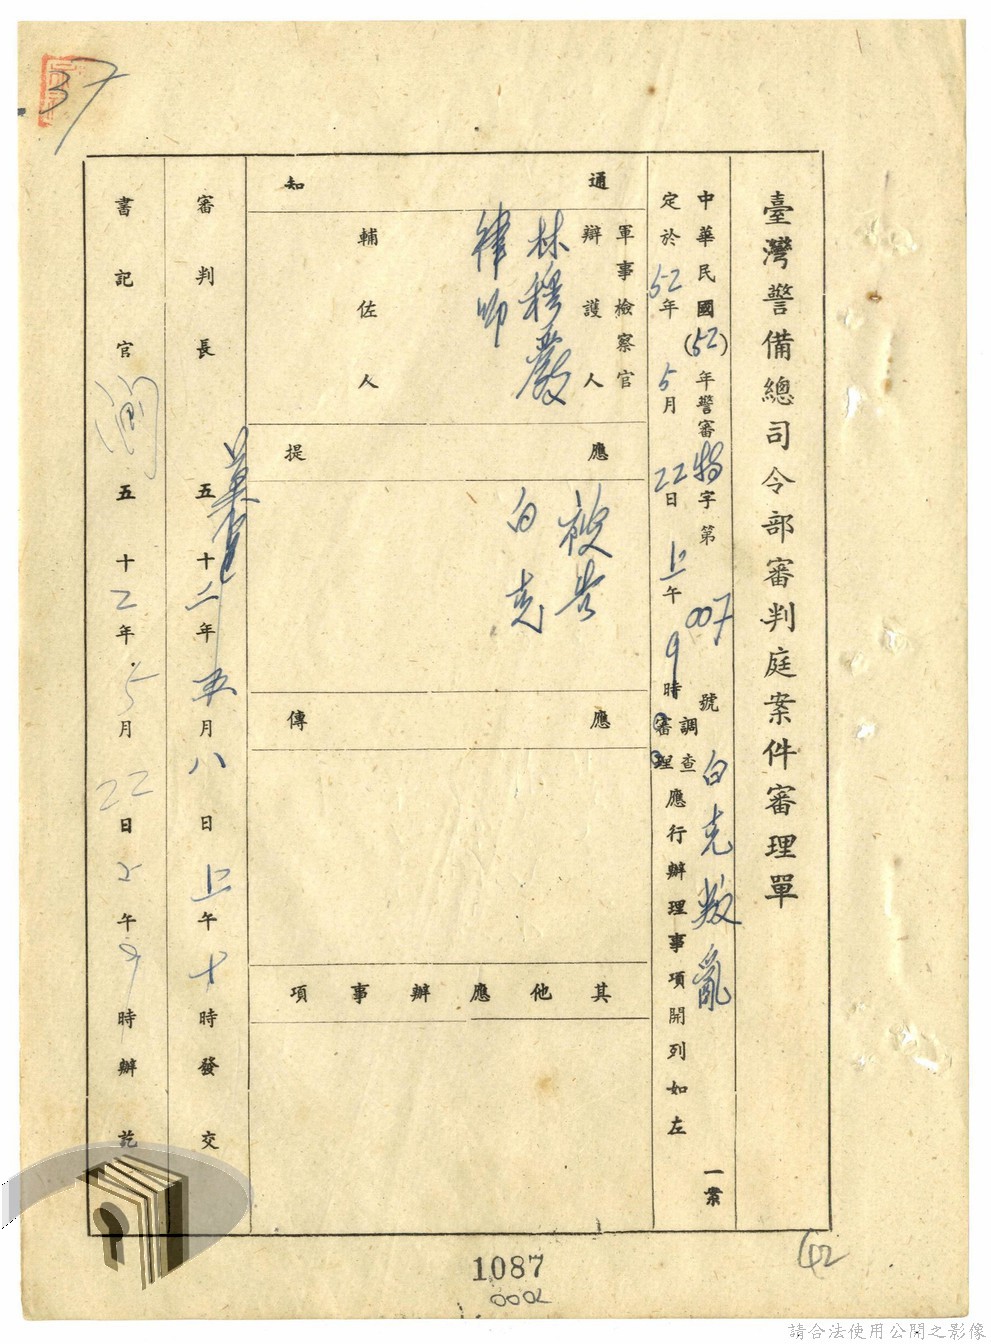 37
臺灣警備總司令部審判庭案件審理單
中華民國(52)年警審特字第007號白克叛亂一案
定於52年5月22日上午9時調查審理應行辦理事項開列如左
通知
軍事檢察官
辯護人
林穆嚴
律師
輔佐人
應提
被告
白克
應傳
其他應辦事項
審判長
五十二年五月八日上午十時發交
書記官
五十二年5月22日上午9時辦訖
1087
0002
42
請合法使用公開之影像